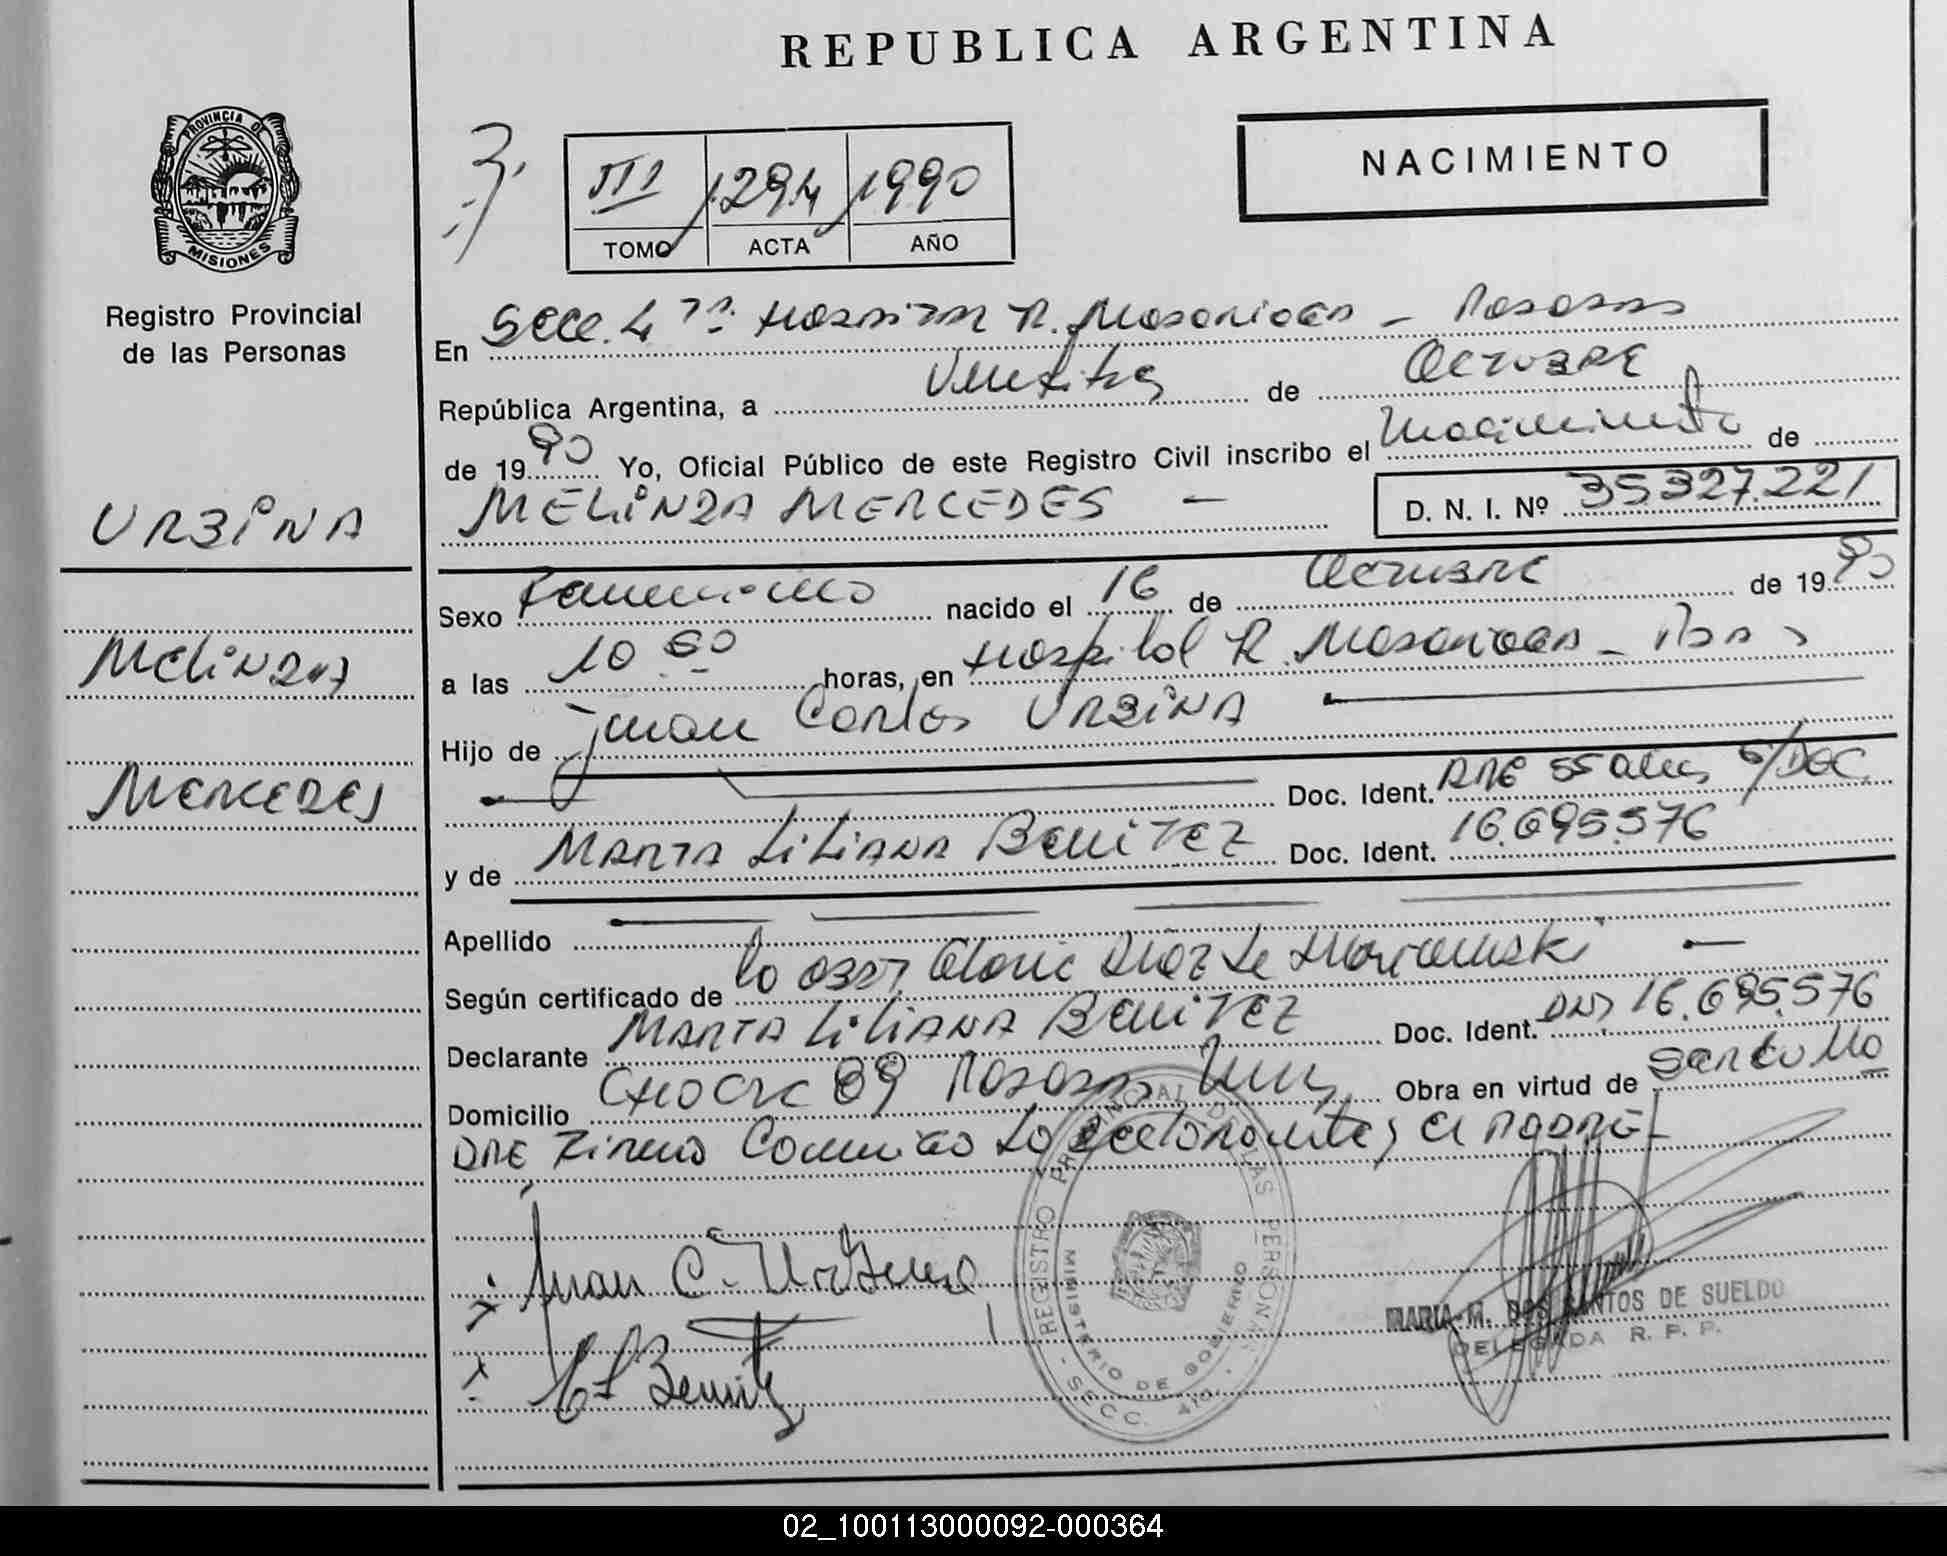 REPUBLICA ARGENTINA
PROVINCIA DE
MISIONES
Registro Provincial
de las Personas
URBINA
MELINDA
MERCEDES
NACIMIENTO
III 1294 1990
TOMO ACTA AÑO
En Secc. 4 ta. Hospital R. Madariaga - Posadas
República Argentina, a Veintitres de Octubre
de 1990 Yo, Oficial Público de este Registro Civil inscribo el Nacimiento de
MELINDA MERCEDES - D. N. I. Nº 35327.221
Sexo Femenino nacido el 16 de Octubre de 1990
a las 10 horas, en Hospital R. Madariaga - Pdas
Hijo de Juan Carlos URBINA
Doc. Ident. 55 años s/DOC
y de MARTA LILIANA BENITEZ Doc. Ident. 16.695.576
Apellido
Según certificado de la obst. Gloria Diaz de
Declarante MARTA LILIANA BENITEZ Doc. Ident. DNI 16.695.576
Domicilio 89 Posadas Mnes Obra en virtud de
la el padre
Juan C. Urbina
Benitez
REGISTRO PROVINCIAL DE LAS PERSONAS
MINISTERIO DE GOBIERNO
SECC. 4ta.
MARIA M. DOS SANTOS DE SUELDO
DELEGADA R. P. P.
02_100113000092-000364